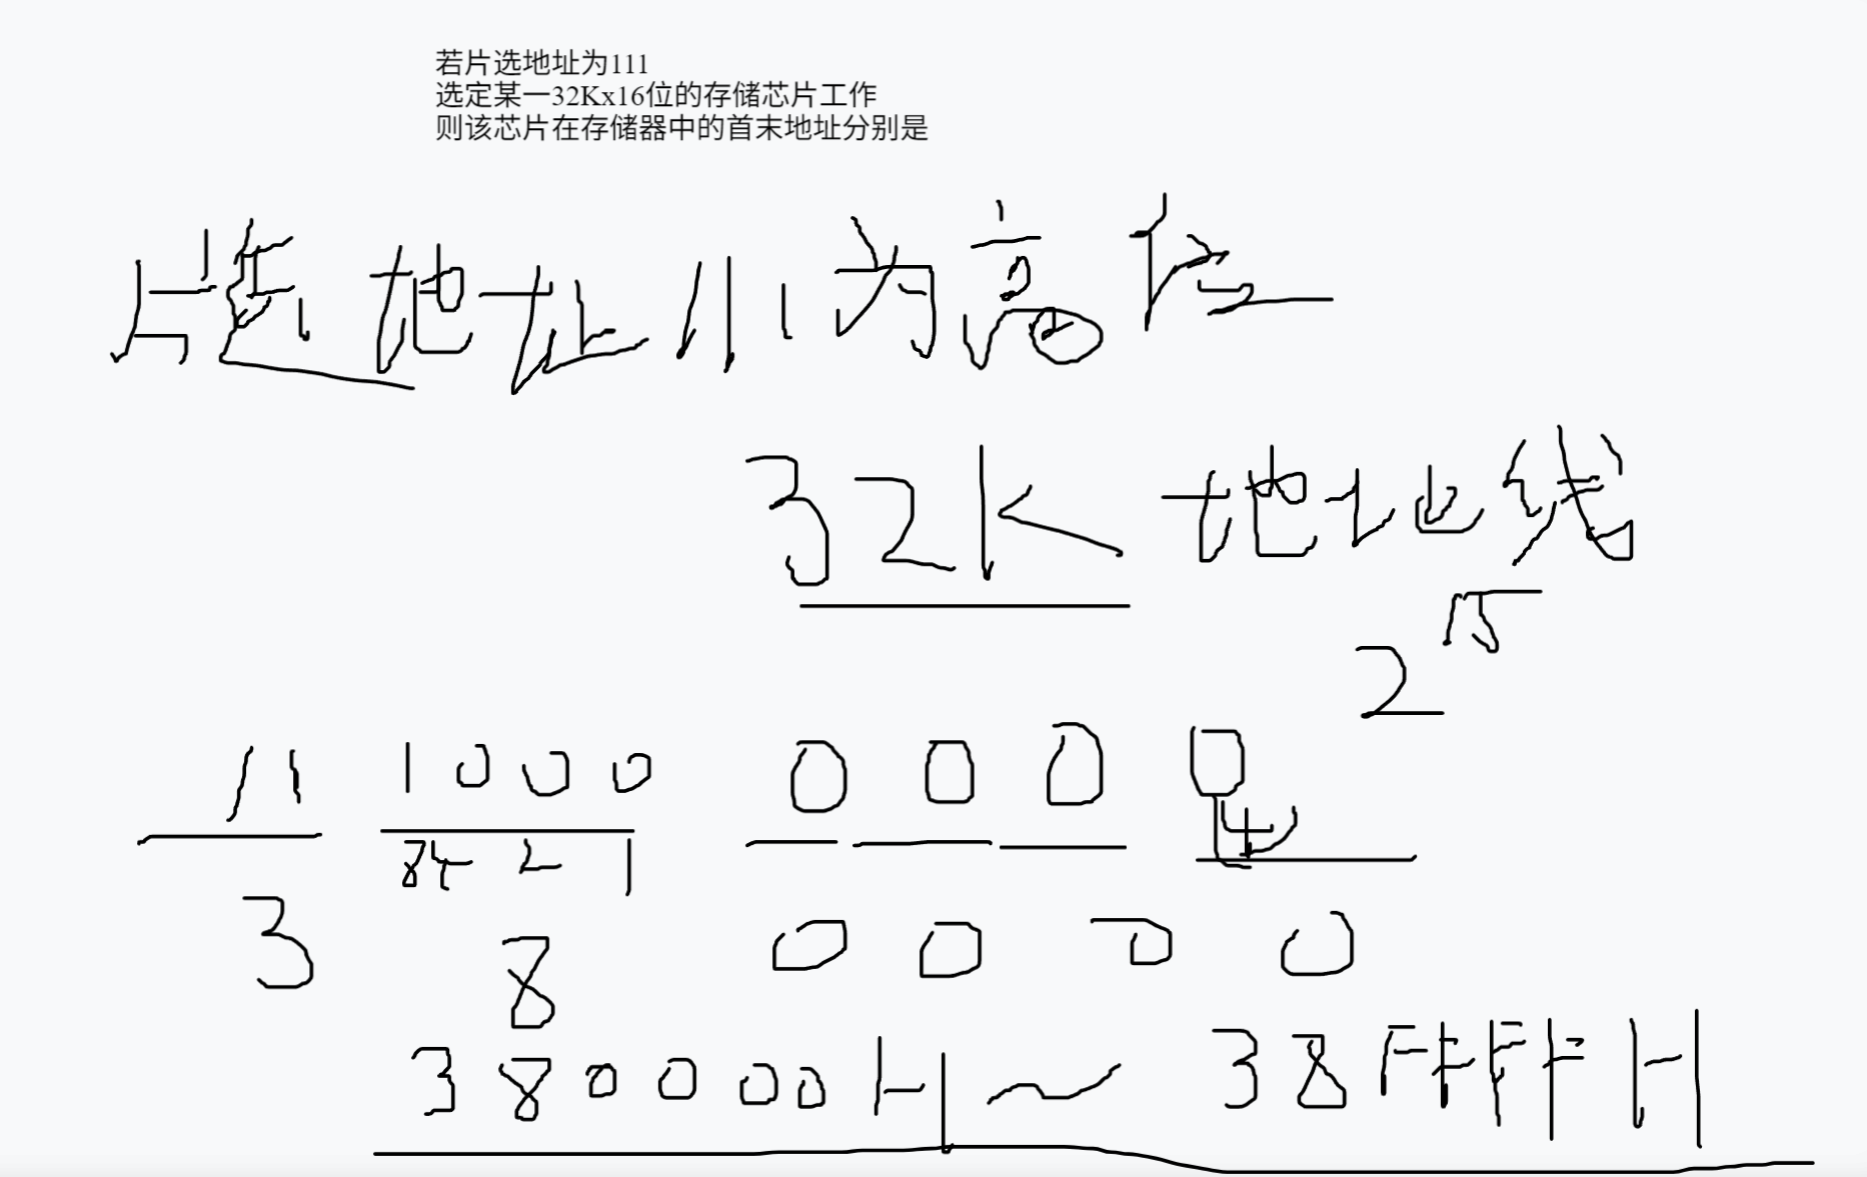 若片选地址为111
选定某一32Kx16位的存储芯片工作
则该芯片在存储器中的首末地址分别是
片选地址111为高位
32K 地址线
2^15
11 1000 0 0 0 0
84 2 1
3 8 0 0 0 0
380000H ~ 38FFFFH